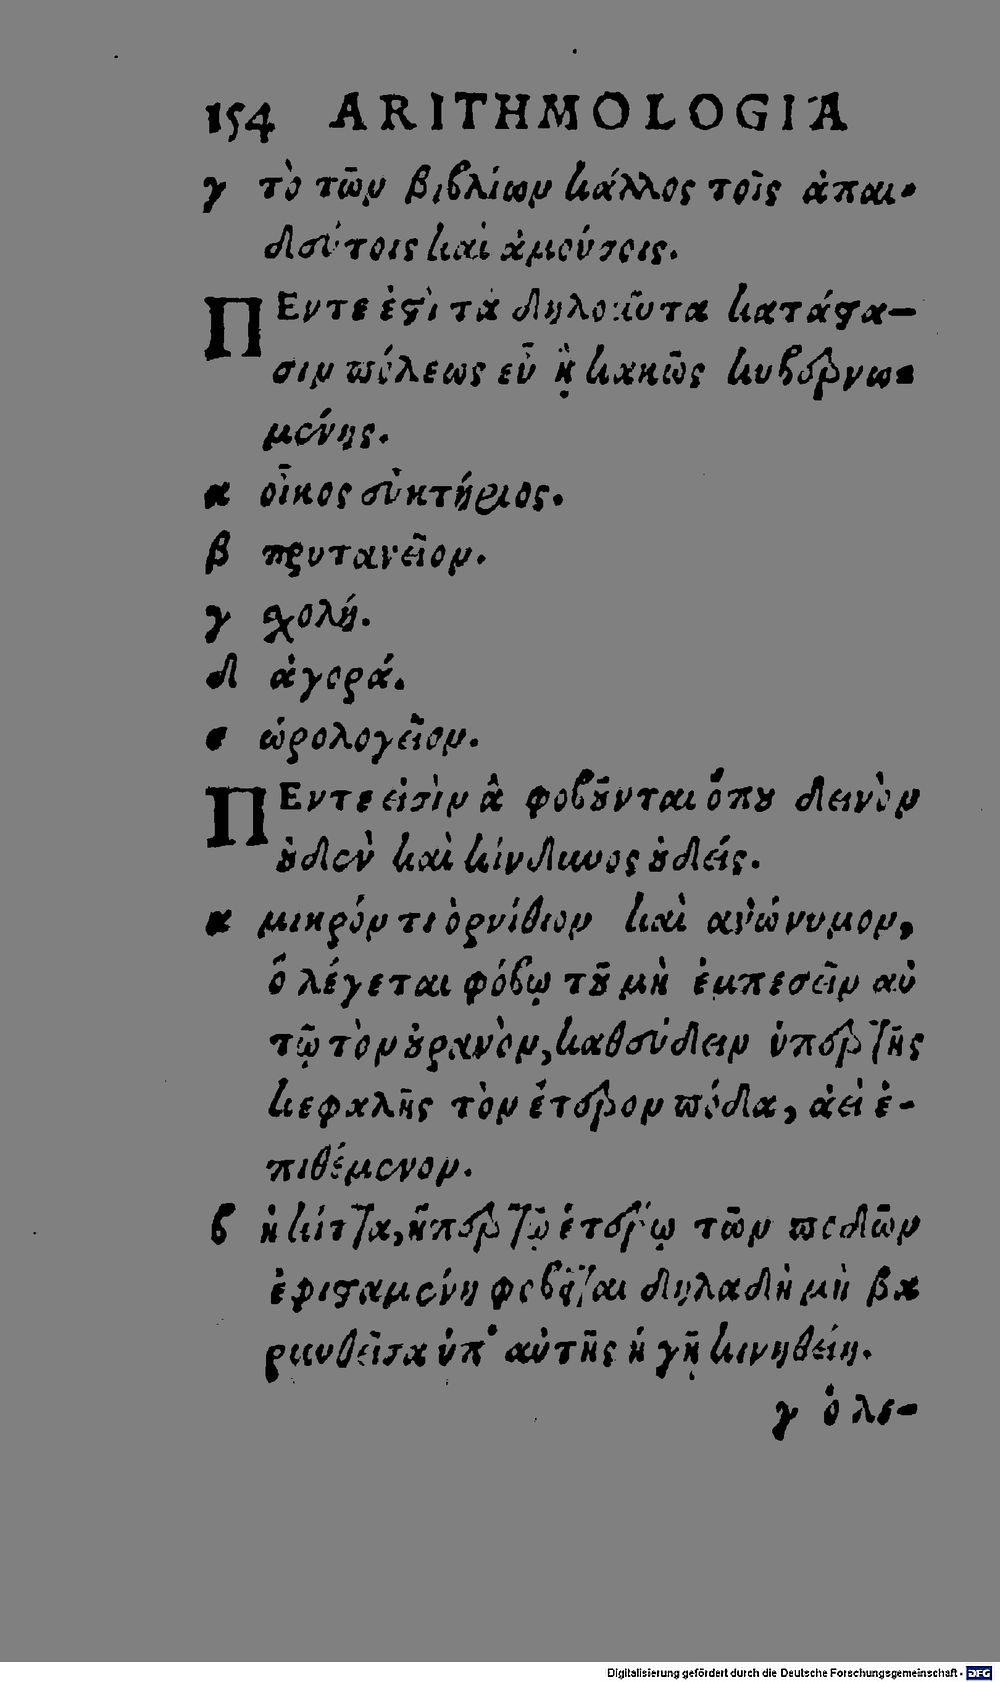 154 ARITHMOLOGIA
γ τὸ τῶν βιβλίων κάλλος τοῖς ἀπαι-
δεύτοις καὶ ἀμούσοις.
ΠΕντε ἐστὶ τὰ δηλοῦντα κατάστα-
σιν πόλεως εὖ ἢ κακῶς κυβερνω-
μένης.
α οἶκος εὐκτήριος.
β πρυτανεῖον.
γ σχολή.
δ ἀγορά.
ε ὡρολογεῖον.
ΠΕντε εἰσὶν ἃ φοβοῦνται ὅπου δεινὸν
οὐδὲν καὶ κίνδυνος οὐδείς.
α μικρόν τι ὀρνίθιον καὶ ἀνώνυμον,
ὃ λέγεται φόβῳ τοῦ μὴ ἐμπεσεῖν αὐ
τῷ τὸν οὐρανὸν, καθεύδειν ὑπὲρ τῆς
κεφαλῆς τὸν ἕτερον πόδα, ἀεὶ ἐ-
πιθέμενον.
β ἡ κίττα, ἥπερ τῷ ἑτέρῳ τῶν ποδῶν
ἐφισταμένη φοβεῖται δηλαδὴ μὴ βα
ρυνθεῖσα ὑπ' αὐτῆς ἡ γῆ κινηθείη.
γ ὁ λε-
Digitalisierung gefördert durch die Deutsche Forschungsgemeinschaft - DFG